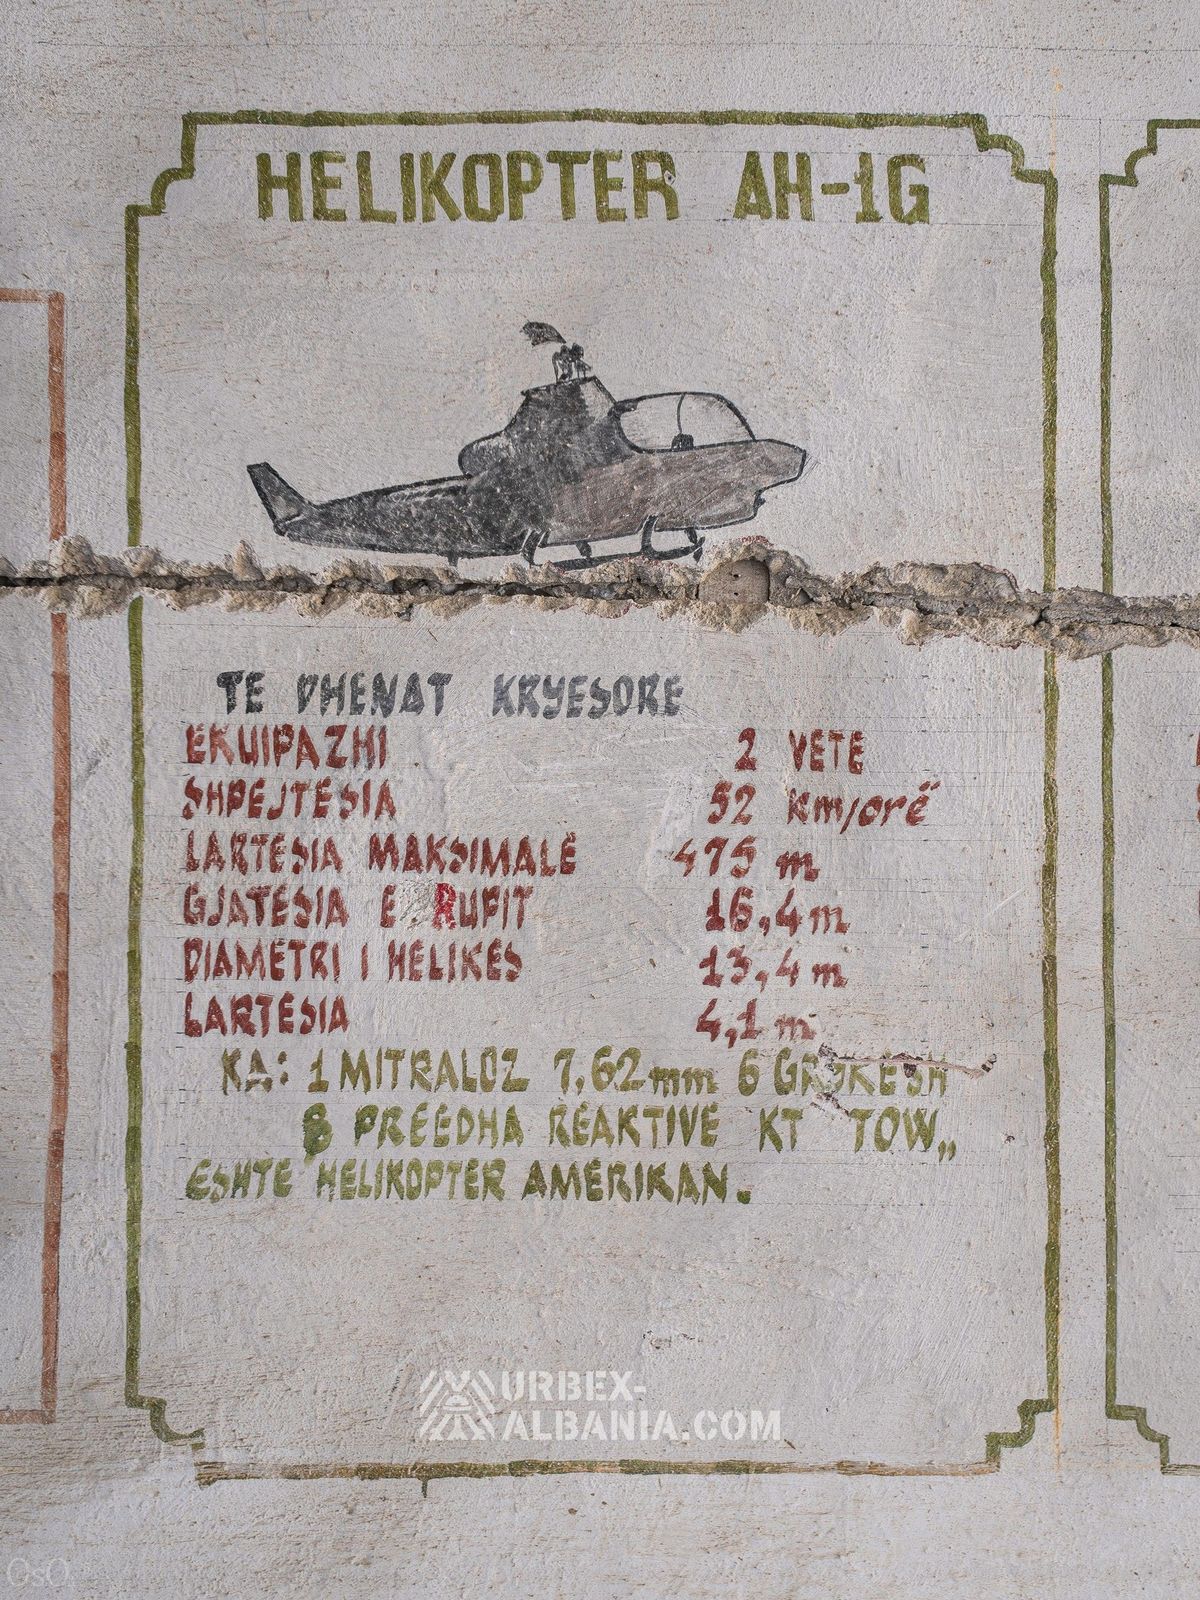 HELIKOPTER AH-1G
TE DHENAT KRYESORE
EKUIPAZHI 2 VETE
SHPEJTESIA 52 Km/orë
LARTESIA MAKSIMALË 475 m
GJATESIA E RUFIT 16,4 m
DIAMETRI I HELIKES 13,4 m
LARTESIA 4,1 m
KA: 1 MITRALOZ 7,62 mm 6 GRYKESH
8 PREEDHA REAKTIVE KT TOW,,
ESHTE HELIKOPTER AMERIKAN.
URBEX-
ALBANIA.COM
OsO